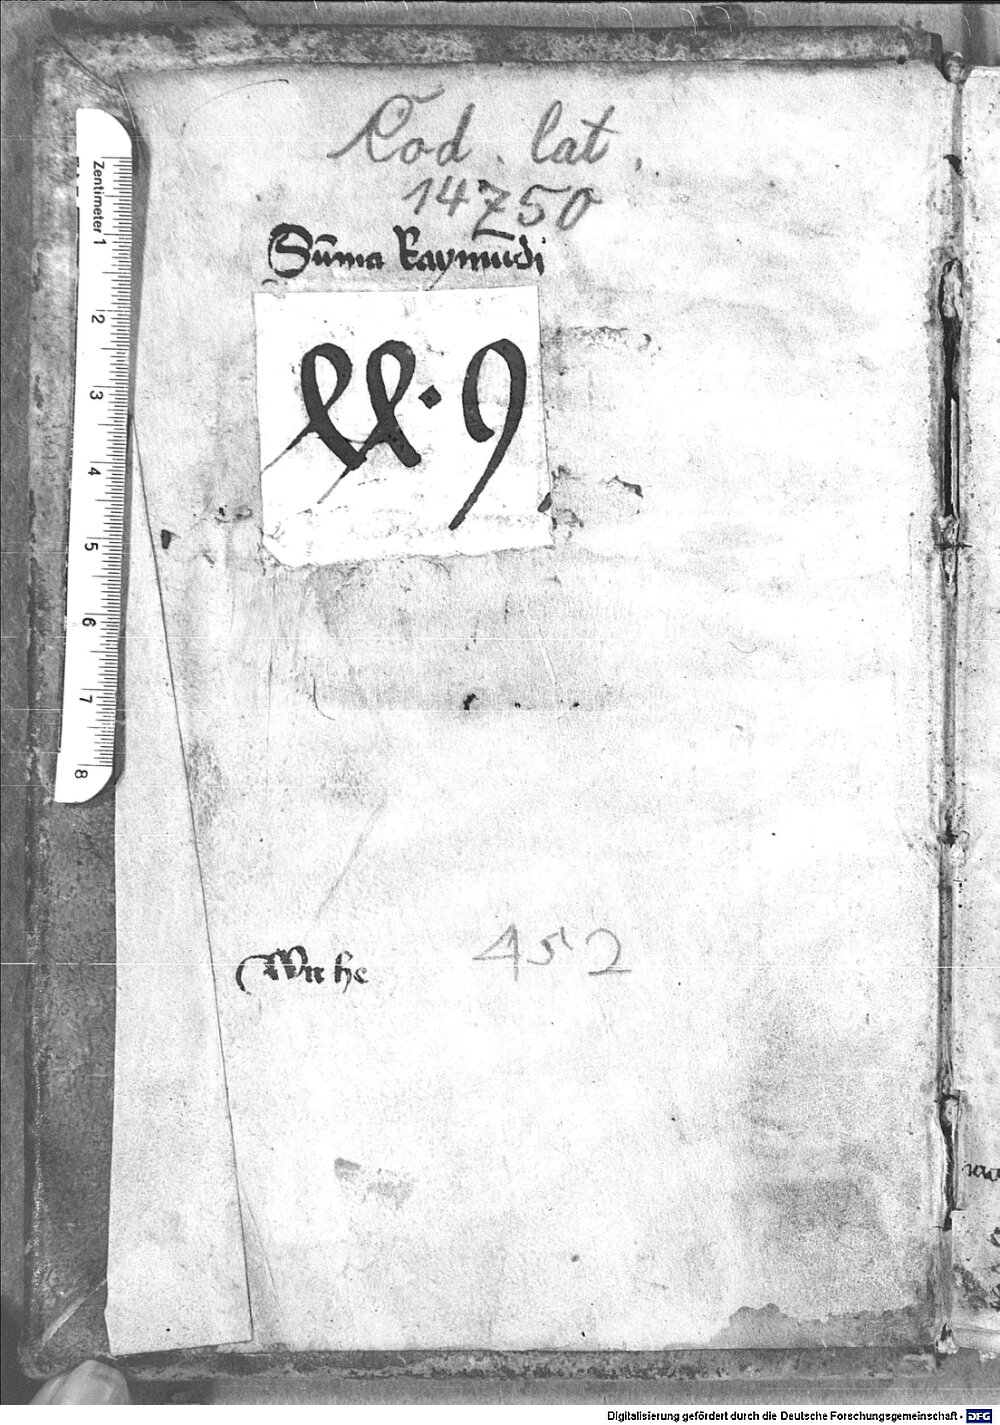 Cod. lat.
14750
Sūma Raymūdi
ll · 9
452
Zentimeter 1 2 3 4 5 6 7 8
Digitalisierung gefördert durch die Deutsche Forschungsgemeinschaft - DFG